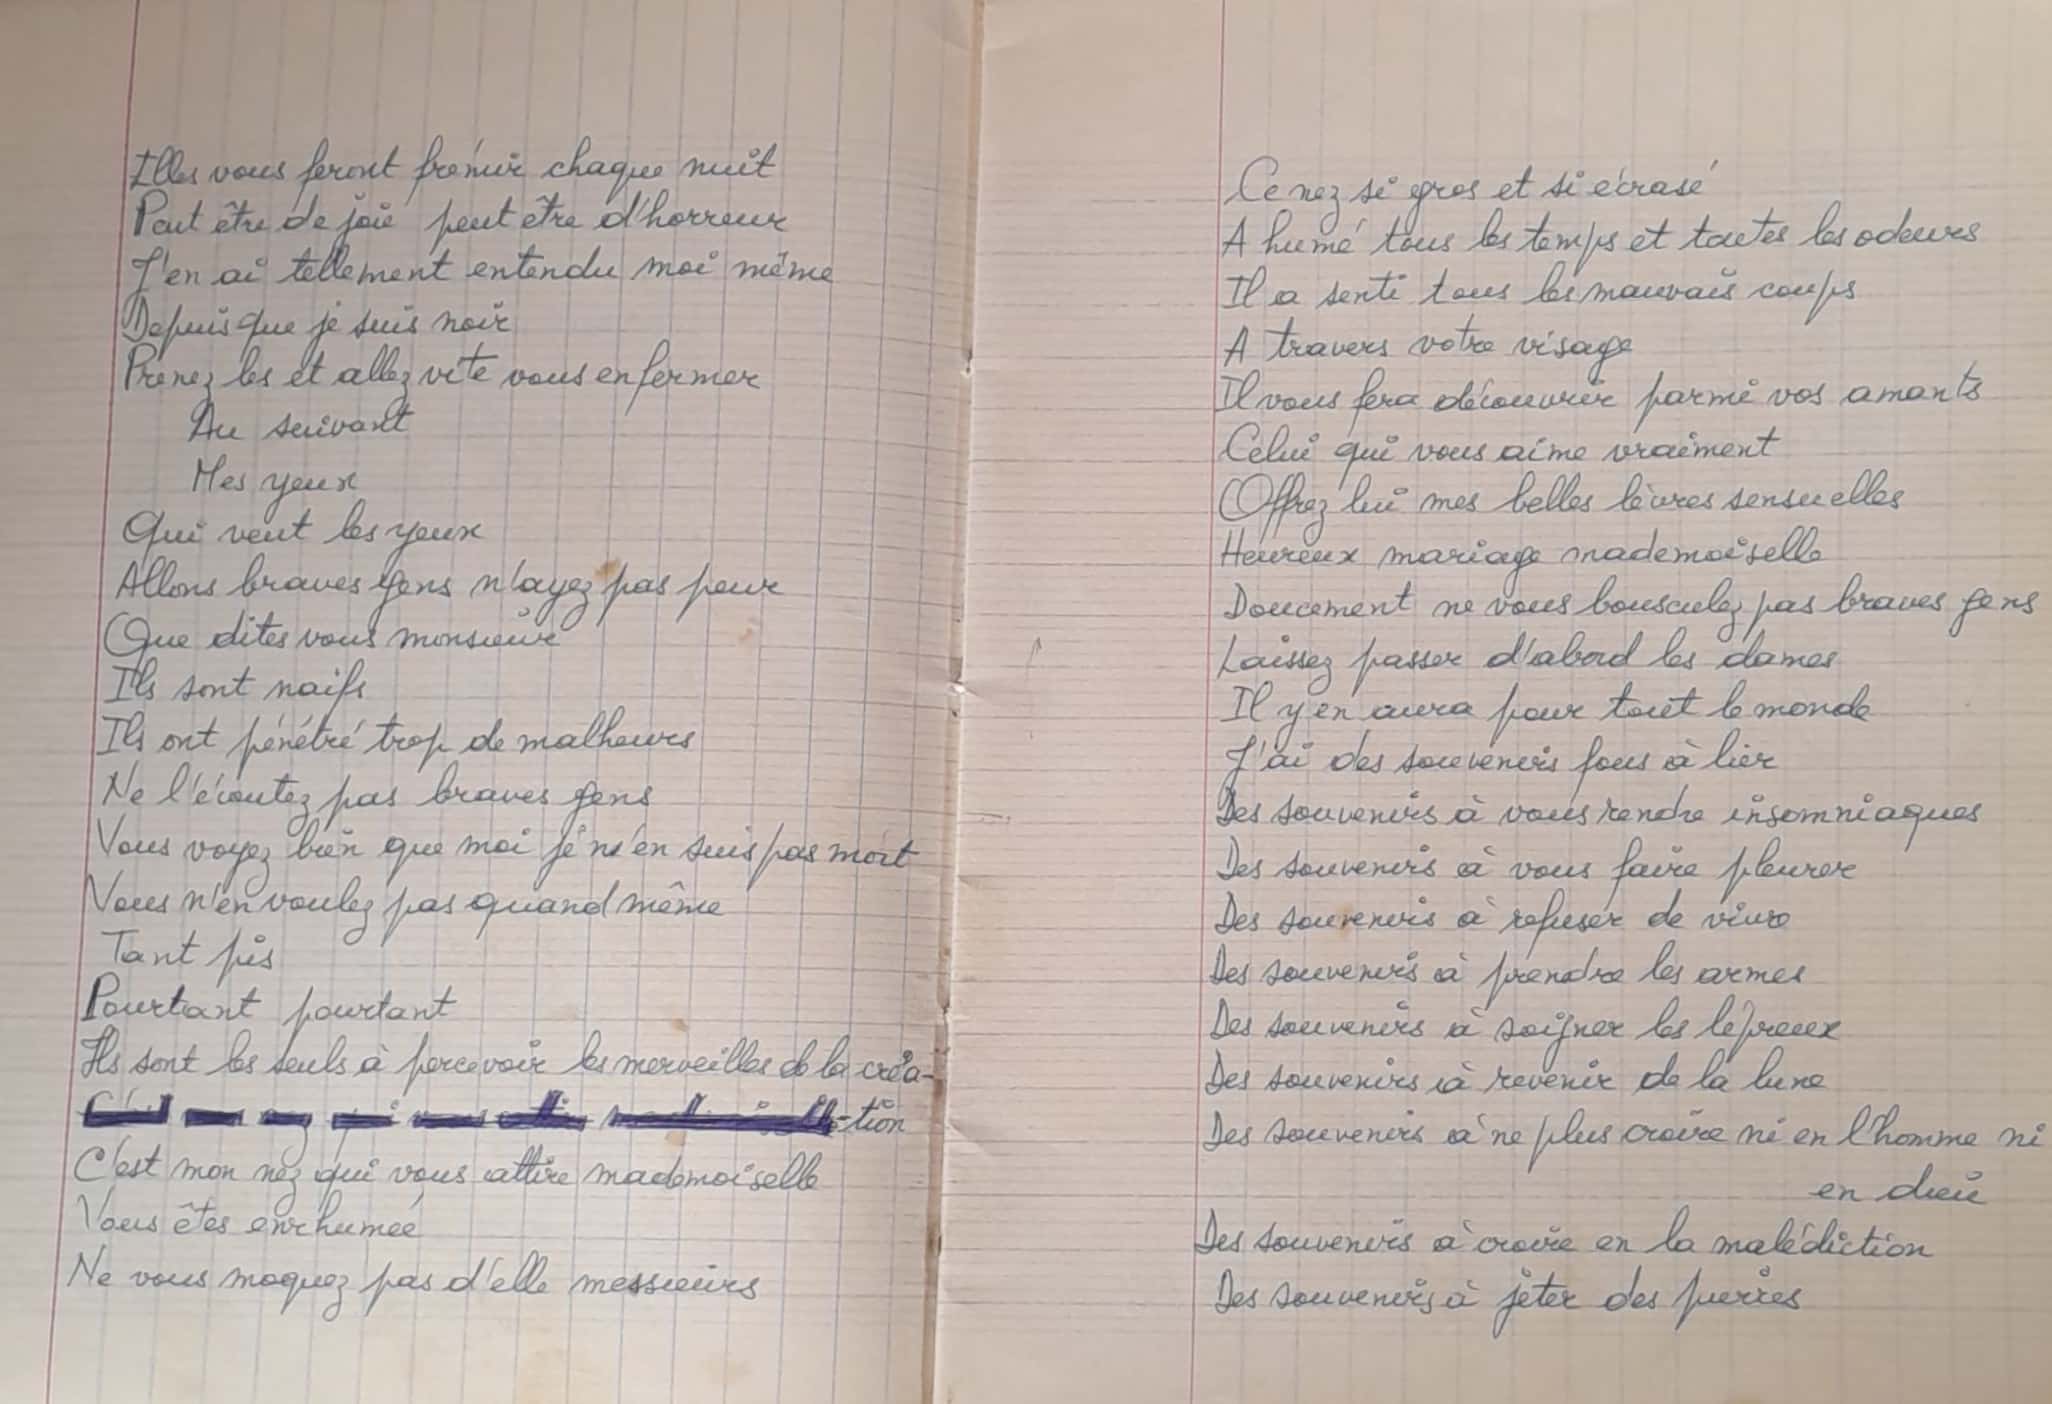 Illes vous feront frémir chaque nuit
Peut être de joie peut être d'horreur
J'en ai tellement entendu moi même
Depuis que je suis noir
Prenez les et allez vite vous enfermer
Au suivant
Mes yeux
Qui veut les yeux
Allons braves gens n'ayez pas peur
Que dites vous monsieur
Ils sont naifs
Ils ont pénétré trop de malheurs
Ne l'écoutez pas braves gens
Vous voyez bien que moi je n'en suis pas mort
Vous n'en voulez pas quand même
Tant pis
Pourtant pourtant
Ils sont les seuls à percevoir les merveilles de la créa-
-tion
C'est mon nez qui vous attire mademoiselle
Vous êtes enrhumée
Ne vous moquez pas d'elle messieurs
Ce nez si gros et si écrasé
A humé tous les temps et toutes les odeurs
Il a senti tous les mauvais coups
A travers votre visage
Il vous fera découvrir parmi vos amants
Celui qui vous aime vraiment
Offrez lui mes belles lèvres sensuelles
Heureux mariage mademoiselle
Doucement ne vous bousculez pas braves gens
Laissez passer d'abord les dames
Il y en aura pour tout le monde
J'ai des souvenirs fous à lier
Des souvenirs à vous rendre insomniaques
Des souvenirs à vous faire pleurer
Des souvenirs à refuser de vivre
Des souvenirs à prendre les armes
Des souvenirs à soigner les lépreux
Des souvenirs à revenir de la lune
Des souvenirs à ne plus croire ni en l'homme ni
en dieu
Des souvenirs à croire en la malédiction
Des souvenirs à jeter des pierres